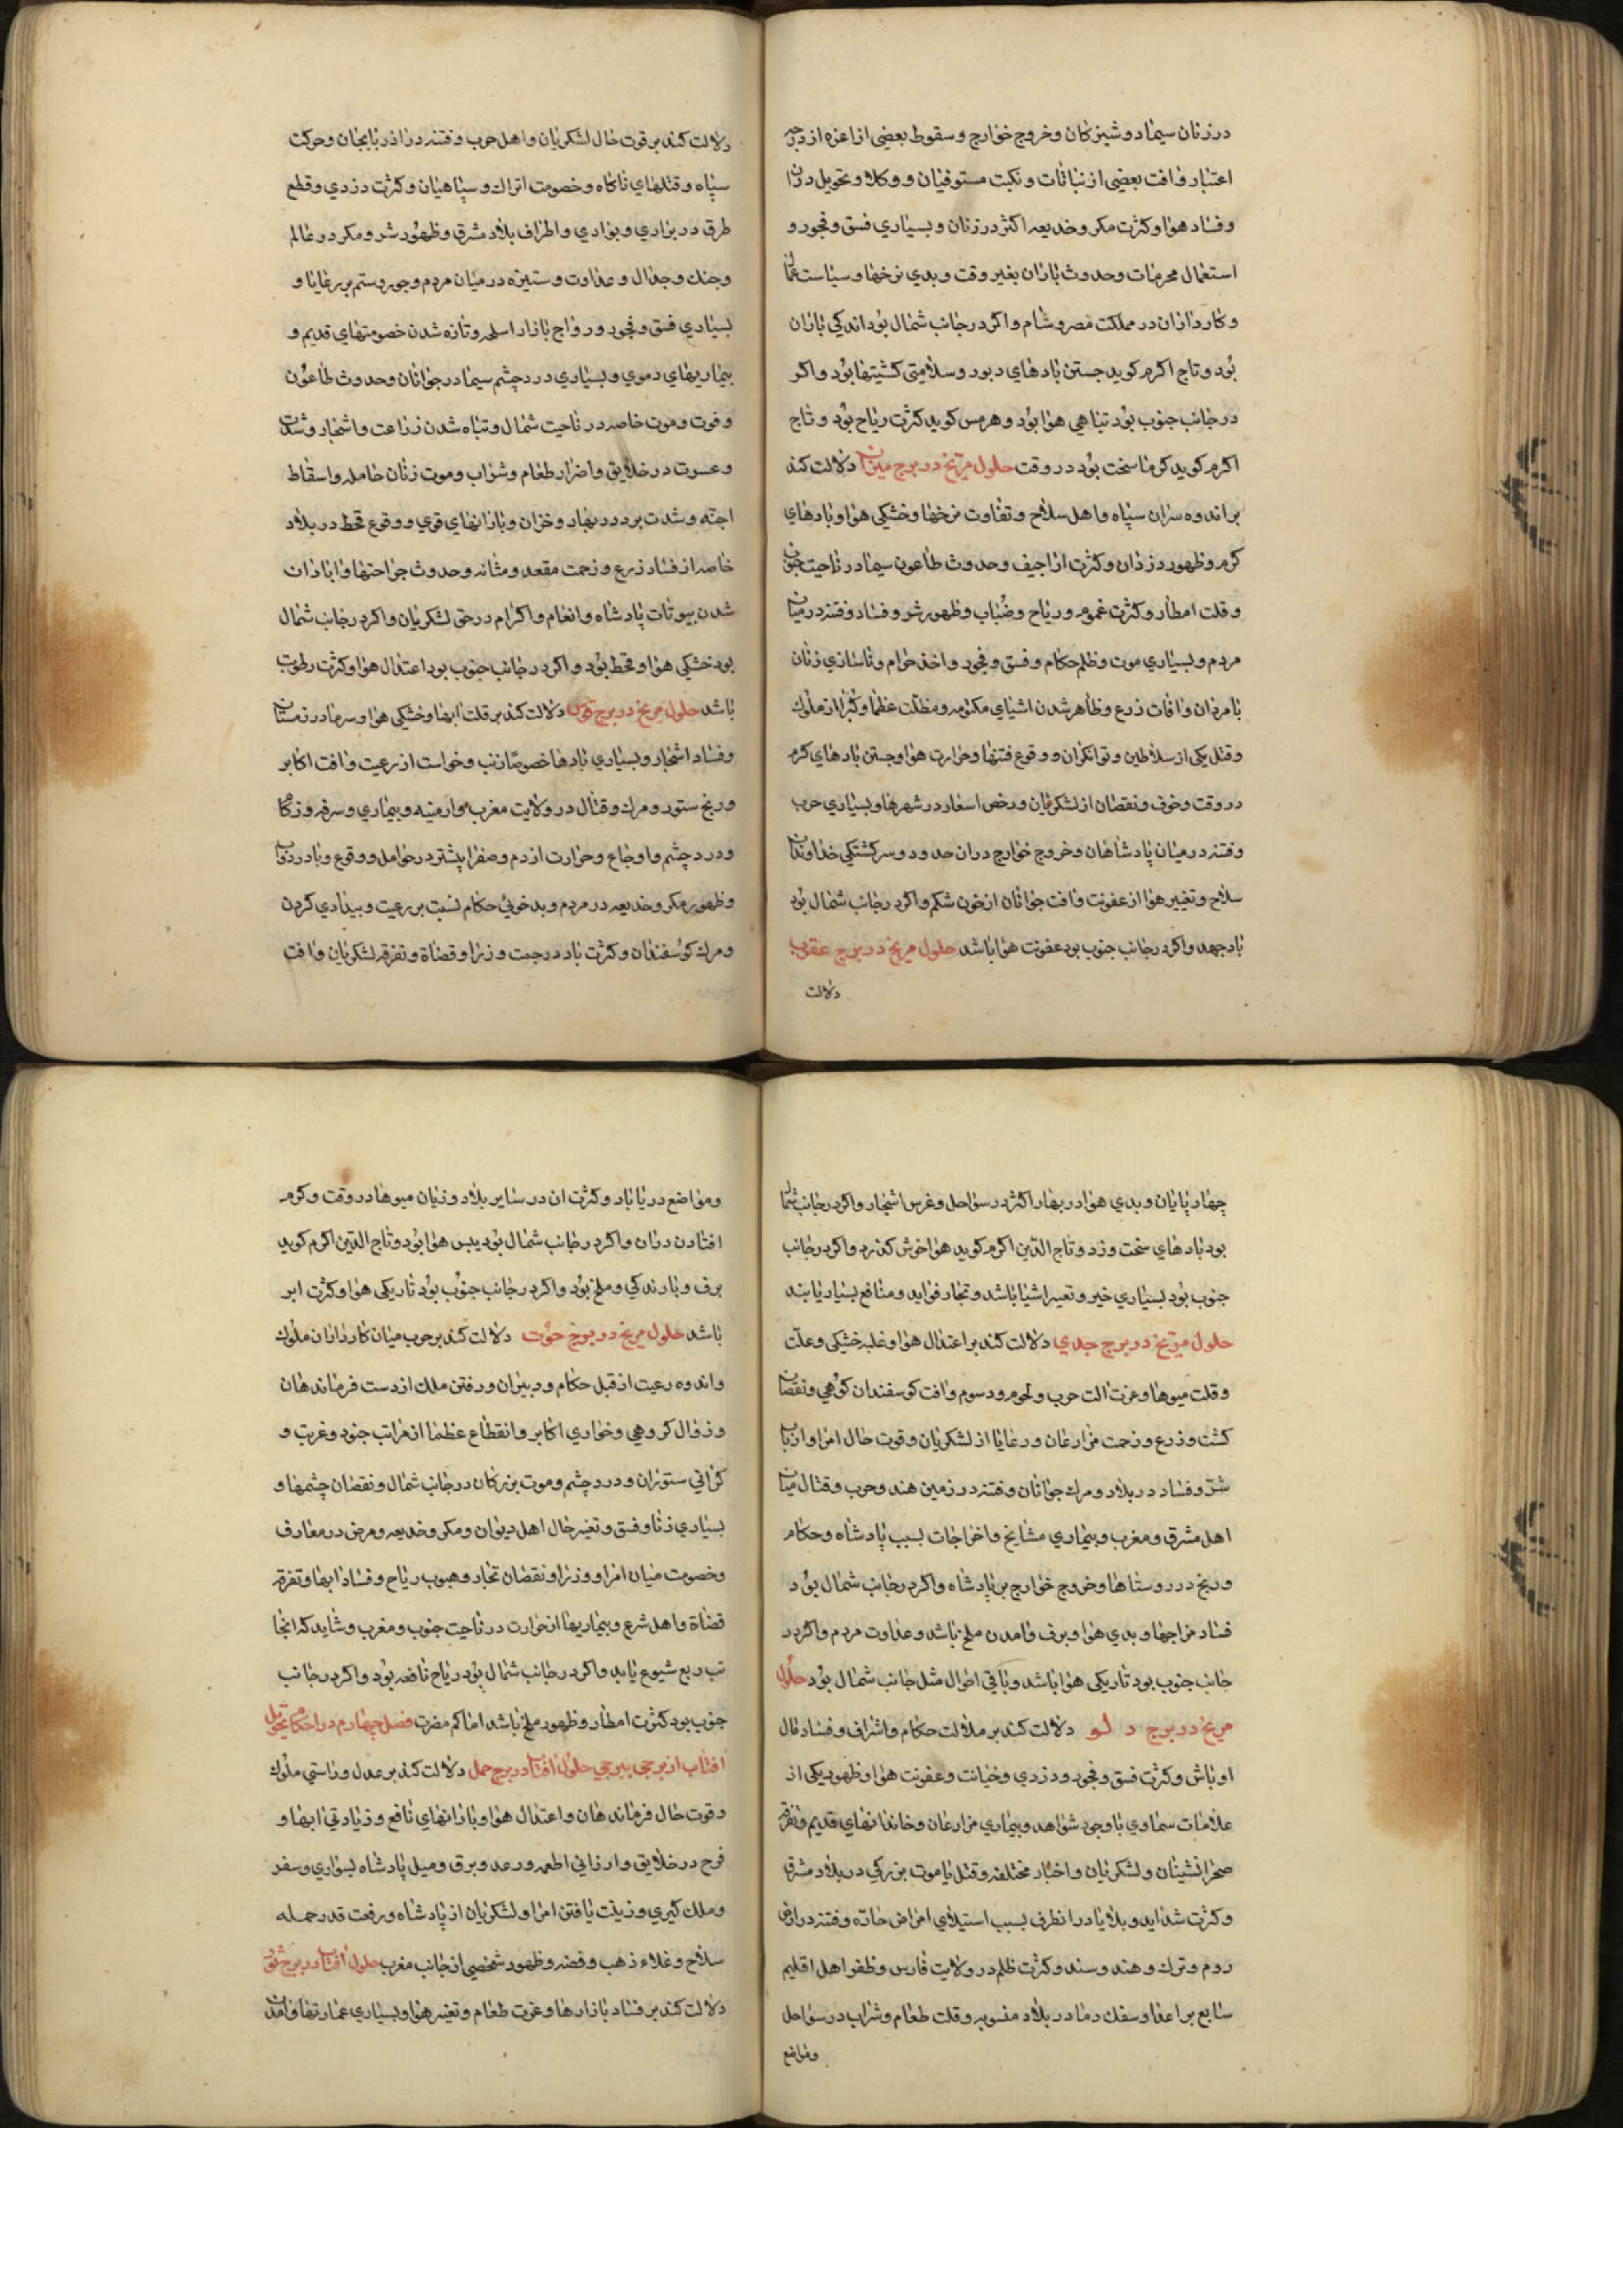 در زنان سیما دوشیزکان و خروج خوارج و سقوط بعضی از اعزه از درجه
اعتبار و افت بعضی از نباتات و نکبت مستوفیان و وکلا و تحویل دران
و فساد هوا و کثرت مکر و خدیعه اکثر در زنان و بسیاری فسق و فجور و
استعمال محرمات و حدوث باران بغیر وقت و بدی نرخها و سیاست عمال
و کارداران در مملکت مصر و شام و اکر در جانب شمال بود اندکی باران
بود و تاج اکرم کوید جستن بادهای دبور و سلامتی کشتیها بود و اکر
در جانب جنوب بود تباهی هوا بود و هرمس کوید کثرت ریاح بود و تاج
اکرم کوید کرما سخت بود در وقت حلول مریخ در برج میزان دلالت کند
بر اندوه سران سپاه و اهل سلاح و تفاوت نرخها و خشکی هوا و بادهای
کرم و ظهور دزدان و کثرت اراجیف و حدوث طاعون سیما در ناحیت جنوب
و قلت امطار و کثرت غموم و ریاح و ضباب و ظهور شر و فساد و فتنه در میان
مردم و بسیاری موت و ظلم حکام و فسق و فجور و اخذ حرام و ناسازی زنان
با مردان و افات زرع و ظاهر شدن اشیای مکتومه و مظلت عظما و کبرا از ملوک
و قتل یکی از سلاطین و توانکران و وقوع فتنها و حرارت هوا و جستن بادهای کرم
در وقت و خوف و نقصان از لشکریان و رخص اسعار در شهرها و بسیاری حرب
و فتنه در میان پادشاهان و خروج خوارج دران حدود و سرکشتکی خداوندان
سلاح و تغییر هوا از عفونت و افت جوانان از خون شکم و اکر در جانب شمال بود
باد جهد و اکر در جانب جنوب بود عفونت هوا باشد حلول مریخ در برج عقرب
دلالت
دلالت کند بر قوت حال لشکریان و اهل حرب و فتنه در اذربایجان و حرکت
سپاه و قتلهای ناکاه و خصومت اتراک و سپاهیان و کثرت دزدی و قطع
طرق در براری و بوادی و اطراف بلاد مشرق و ظهور شر و مکر در عالم
و جنک و جدال و عداوت و ستیزه در میان مردم و جور و ستم بر رعایا و
بسیاری فسق و فجور و رواج بازار اسلحه و تازه شدن خصومتهای قدیم و
بیماریهای دموی و بسیاری درد چشم سیما در جوانان و حدوث طاعون
و فوت و موت خاصه در ناحیت شمال و تباه شدن زراعت و اشجار و شدت
و عسرت در خلایق و اضرار طعام و شراب و موت زنان حامله و اسقاط
اجنه و شدت برد در بهار و خزان و بارانهای قوی و وقوع قحط در بلاد
خاصه از فساد زرع و زحمت مقعد و مثانه و حدوث جراحتها و ابادان
شدن بیوتات پادشاه و انعام و اکرام در حق لشکریان و اکر در جانب شمال
بود خشکی هوا و قحط بود و اکر در جانب جنوب بود اعتدال هوا و کثرت رطوبت
باشد حلول مریخ در برج قوس دلالت کند بر قلت ابها و خشکی هوا و سرما در زمستان
و فساد اشجار و بسیاری بادها خصوصا زنب و خواست از رعیت و افت اکابر
و رنج ستور و مرک و قتال در ولایت مغرب و ارمنیه و بیماری و سرفه و زکام
و درد چشم و اوجاع و حرارت از دم و صفرا پیشتر در حوامل و وقوع وبا در دواب
و ظهور مکر و خدیعه در مردم و بدخوئی حکام نسبت بر رعیت و بیدادی کردن
و مرک کوسفندان و کثرت باد در جمت وزرا و قضاة و تفرقه لشکریان و افت
چهارپایان و بدی هوا در بهار اکثر در سواحل و غرس اشجار و اکر در جانب شمال
بود بادهای سخت وزد و تاج الدین اکرم کوید هوا خوش کذرد و اکر در جانب
جنوب بود بسیاری خیر و تعیر اشیا باشد و تجار فواید و منافع بسیار یابند
حلول مریخ در برج جدی دلالت کند بر اعتدال هوا و غلبه خشکی و علت
و قلت میوها و عزت الت حرب و لحوم و دسوم و افت کوسفندان کوهی و نقصان
کشت و زرع و زحمت مزارعان و رعایا از لشکریان و قوت حال امرا و ارباب
شر و فساد در بلاد و مرک جوانان و فتنه در زمین هند و حرب و قتال میان
اهل مشرق و مغرب و بیماری مشایخ و اخراجات بسبب پادشاه و حکام
و رنج در روستاها و خروج خوارج بر پادشاه و اکر در جانب شمال بود
فساد مزاجها و بدی هوا و برف و امدن ملخ باشد و عداوت مردم و اکر در
جانب جنوب بود تاریکی هوا باشد و باقی احوال مثل جانب شمال بود حلول
مریخ در برج دلو دلالت کند بر ملالت حکام و اشراف و فساد حال
اوباش و کثرت فسق و فجور و دزدی و خیانت و عفونت هوا و ظهور یکی از
علامات سماوی با وجود شواهد و بیماری مزارعان و خاندانهای قدیم و تفرقه
صحرانشینان و لشکریان و اخبار مختلفه و قتل یا موت بزرکی در بلاد مشرق
و کثرت شداید و بلایا در انطرف بسبب استیلای امراض حاده و فتنه در ارض
روم و ترک و هند و سند و کثرت ظلم در ولایت فارس و ظفر اهل اقلیم
سابع بر اعدا و سفک دما در بلاد منسوبه و قلت طعام و شراب در سواحل
و مواضع
و مواضع دریاباد و کثرت ان در سایر بلاد و زیان میوها در وقت و کرم
افتادن دران و اکر در جانب شمال بود یبس هوا بود و تاج الدین اکرم کوید
برف و بارندکی و ملخ بود و اکر در جانب جنوب بود تاریکی هوا و کثرت ابر
باشد حلول مریخ در برج حوت دلالت کند بر حرب میان کارداران ملوک
و اندوه رعیت از قبل حکام و دبیران و رفتن ملک از دست فرماندهان
و زوال کروهی و خواری اکابر و انقطاع عظما از مراتب جنود و غربت و
کرانی ستوران و درد چشم و موت بزرکان در جانب شمال و نقصان چشمها و
بسیاری زنا و فسق و تغیر حال اهل دیوان و مکر و خدیعه و مرض در معارف
و خصومت میان امرا و وزرا و نقصان تجار و هبوب ریاح و فساد ابها و تفرقه
قضاة و اهل شرع و بیماریها از حرارت در ناحیت جنوب و مغرب و شاید که انجا
تب ربع شیوع یابد و اکر در جانب شمال بود ریاح نافعه بود و اکر در جانب
جنوب بود کثرت امطار و ظهور ملخ باشد اما کم مضرت فصل چهارم در احکام تحویل
افتاب از برجی ببرجی حلول افتاب در برج حمل دلالت کند بر عدل و راستی ملوک
و قوت حال فرماندهان و اعتدال هوا و بارانهای نافع و زیادتی ابها و
فرح در خلایق و ارزانی اطعمه و رعد و برق و میل پادشاه بسواری و سفر
و ملک کیری و زینت یافتن امرا و لشکریان از پادشاه و رفعت قدر حمله
سلاح و غلاء ذهب و فضه و ظهور شخصی از جانب مغرب حلول افتاب در برج ثور
دلالت کند بر فساد بازارها و عزت طعام و تغیر هوا و بسیاری عمارتها و امدن